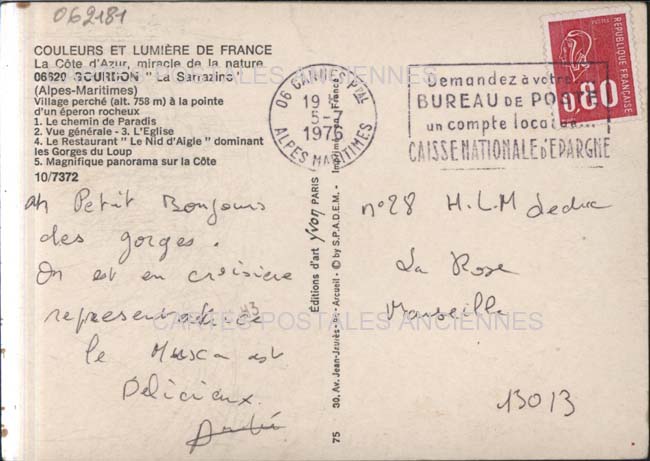 062181
COULEURS ET LUMIÈRE DE FRANCE
La Côte d'Azur, miracle de la nature
06620 GOURDON "La Sarrazine"
(Alpes-Maritimes)
Village perché (alt. 758 m) à la pointe
d'un éperon rocheux
1. Le chemin de Paradis
2. Vue générale - 3. L'Eglise
4. Le Restaurant "Le Nid d'Aigle" dominant
les Gorges du Loup
5. Magnifique panorama sur la Côte
10/7372
un Petit Bonjours
des gorges.
On est en croisière
le Musca est
Délicieux
André
Editions d'art Yvon PARIS
30, Av. Jean-Jaurès - Arcueil - © by S.P.A.D.E.M. - Imprimé en France
75
06 CANNES
19
5 -
1976
ALPES MARITIMES
Demandez à votre
BUREAU DE POSTE
un compte local
CAISSE NATIONALE D'EPARGNE
0,80
REPUBLIQUE FRANÇAISE
n°28 H.L.M leduc
La Rose
Marseille
13013
CARTES POSTALES ANCIENNES
CARTES POSTALES ANCIENNES